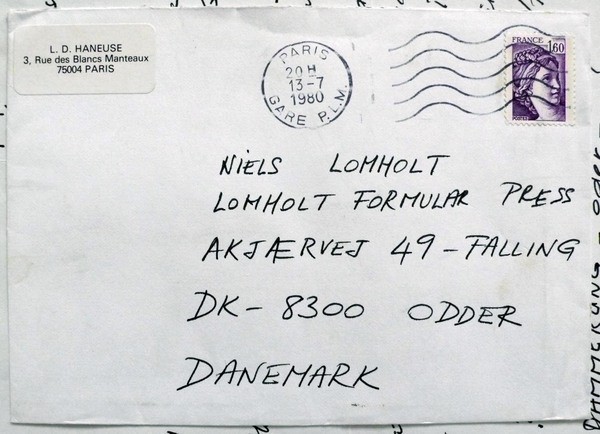 L. D. HANEUSE
3, Rue des Blancs Manteaux
75004 PARIS
PARIS
20H
13-7
1980
GARE P.L.M.
FRANCE
1,60
NIELS LOMHOLT
LOMHOLT FORMULAR PRESS
AKJÆRVEJ 49-FALLING
DK-8300 ODDER
DANEMARK